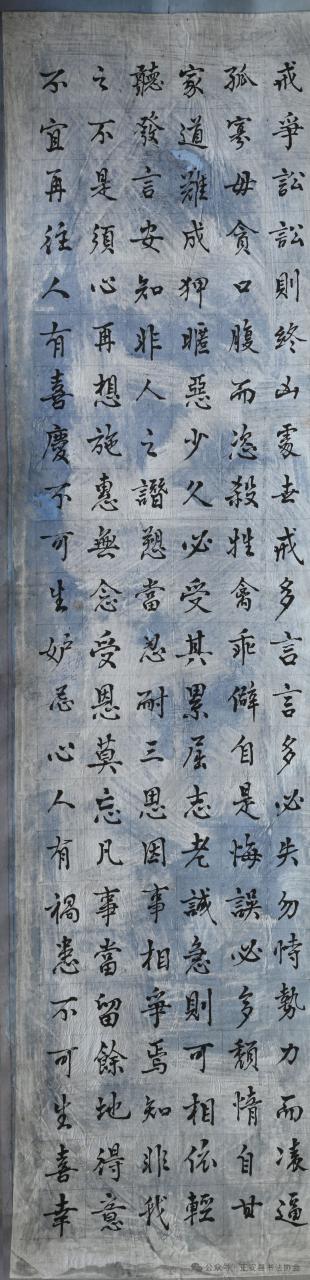 戒爭訟訟則終凶處世戒多言言多必失勿恃勢力而凌逼
孤寡毋貪口腹而恣殺牲禽乖僻自是悔誤必多頹惰自甘
家道難成狎暱惡少久必受其累屈志老誠急則可相依輕
聽發言安知非人之譖愬當忍耐三思因事相爭焉知非我
之不是須心再想施惠無念受恩莫忘凡事當留餘地得意
不宜再往人有喜慶不可生妒忌心人有禍患不可生喜幸
公众号 · 正安县书法协会